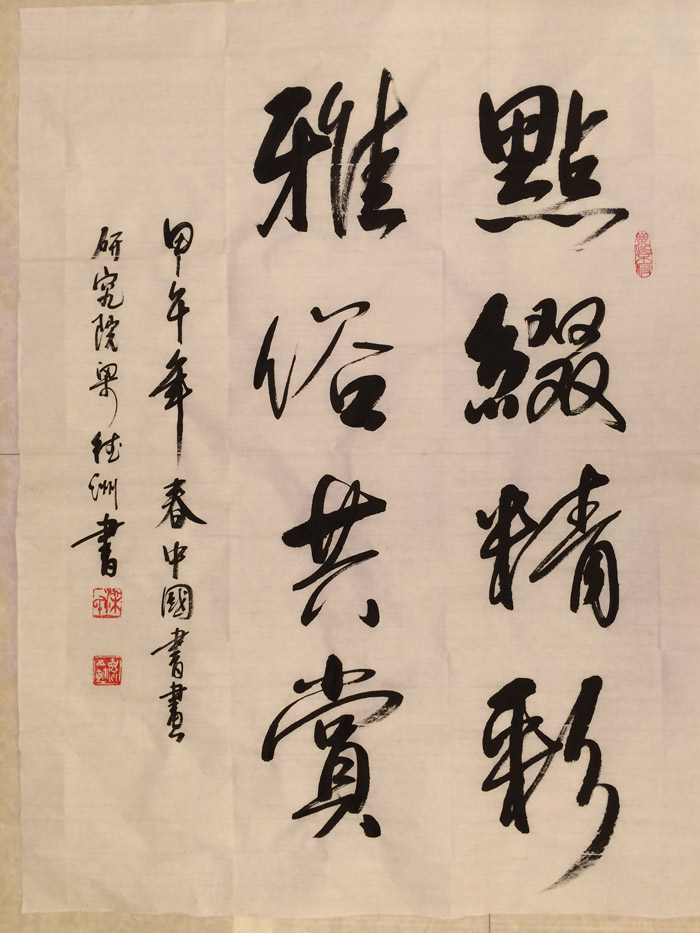 點綴精彩
雅俗共賞
甲午年春中國書畫
研究院梁德洲書